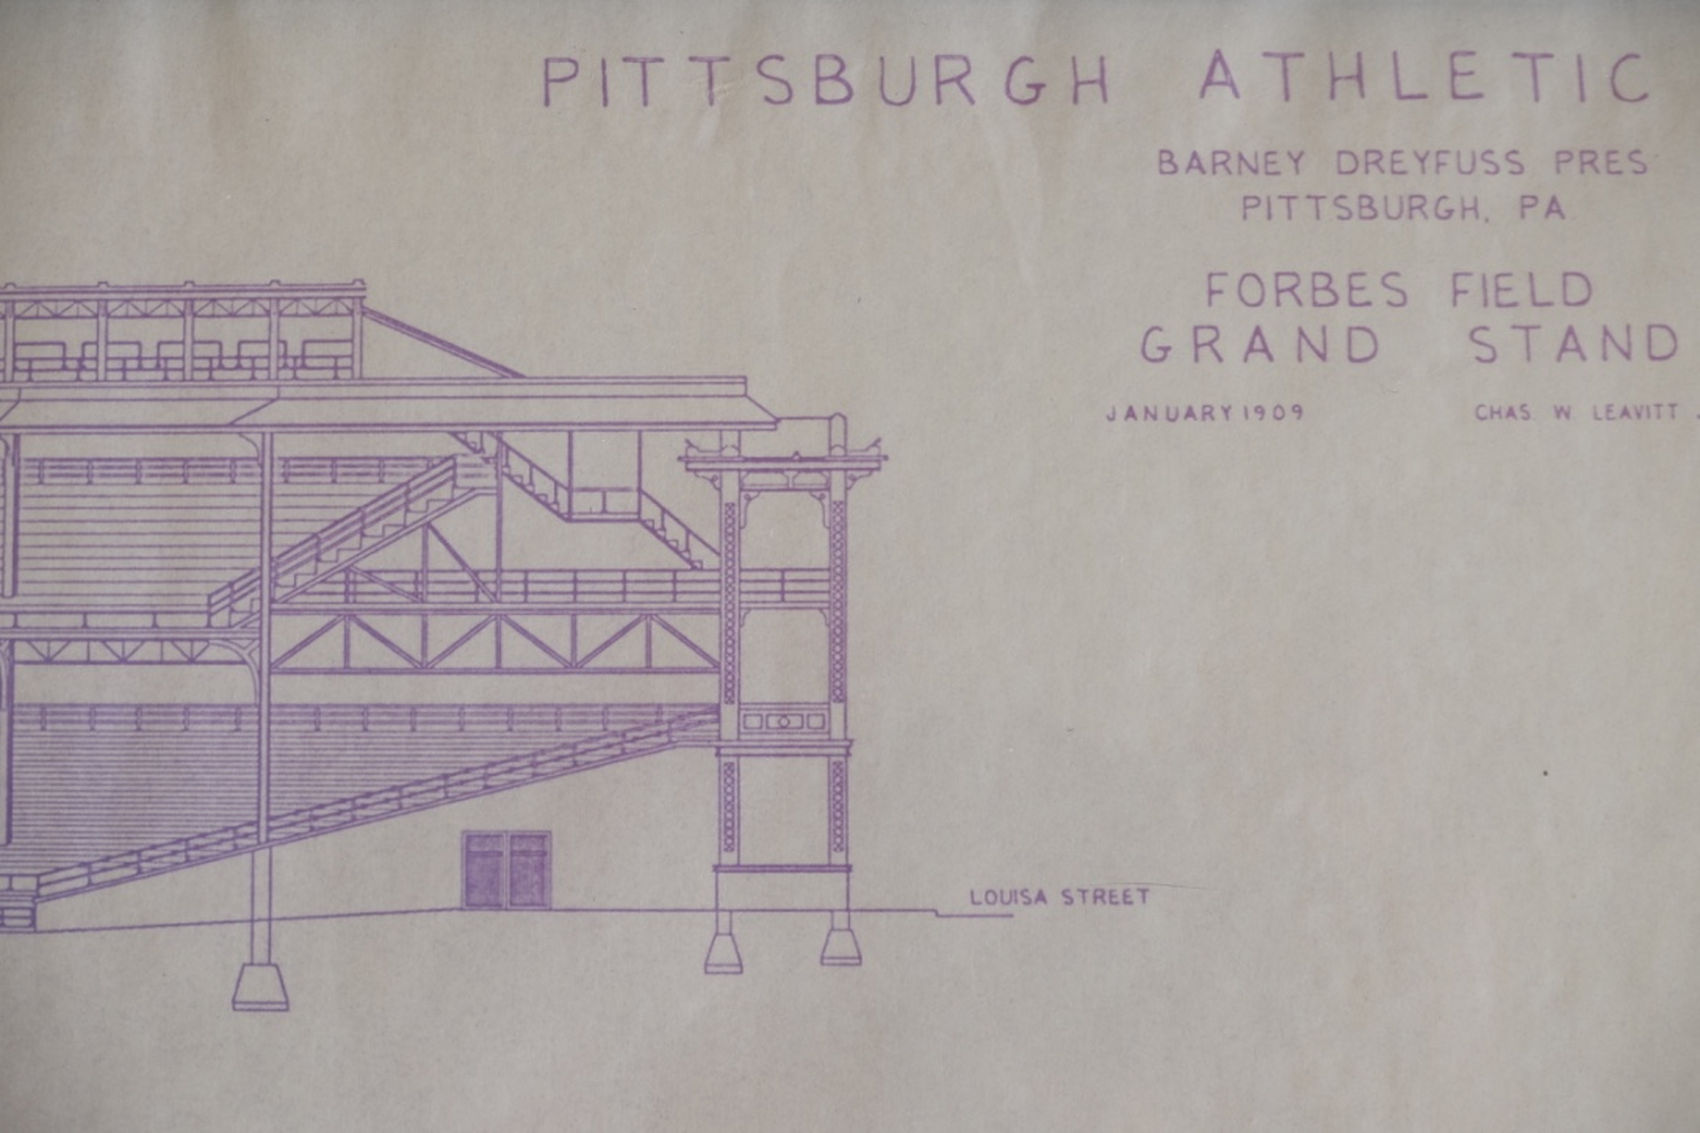 PITTSBURGH ATHLETIC
BARNEY DREYFUSS PRES
PITTSBURGH, PA
FORBES FIELD
GRAND STAND
JANUARY 1909 CHAS. W LEAVITT
LOUISA STREET